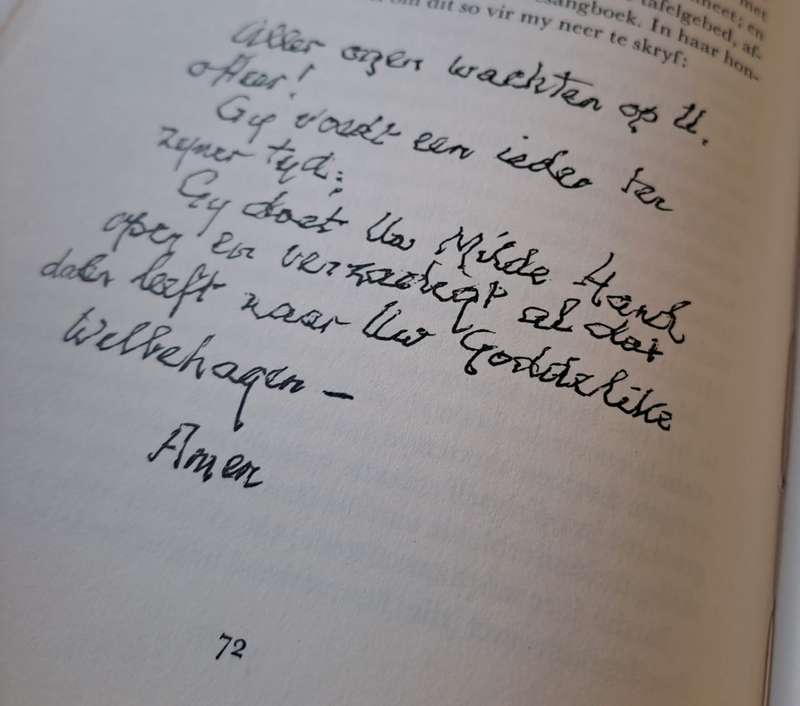 met
neet; en
tafelgebed, af-
sangboek. In haar hon-
om dit so vir my neer te skryf:
Aller ogen wachten op U.
o Heer!
Gij voedt een ieder ten
zyner tyd;
Gy doet Uw Milde Hand
open en verzadigt al dat
daer leeft naar Uw Goddelike
Welbehagen —
Amen
72